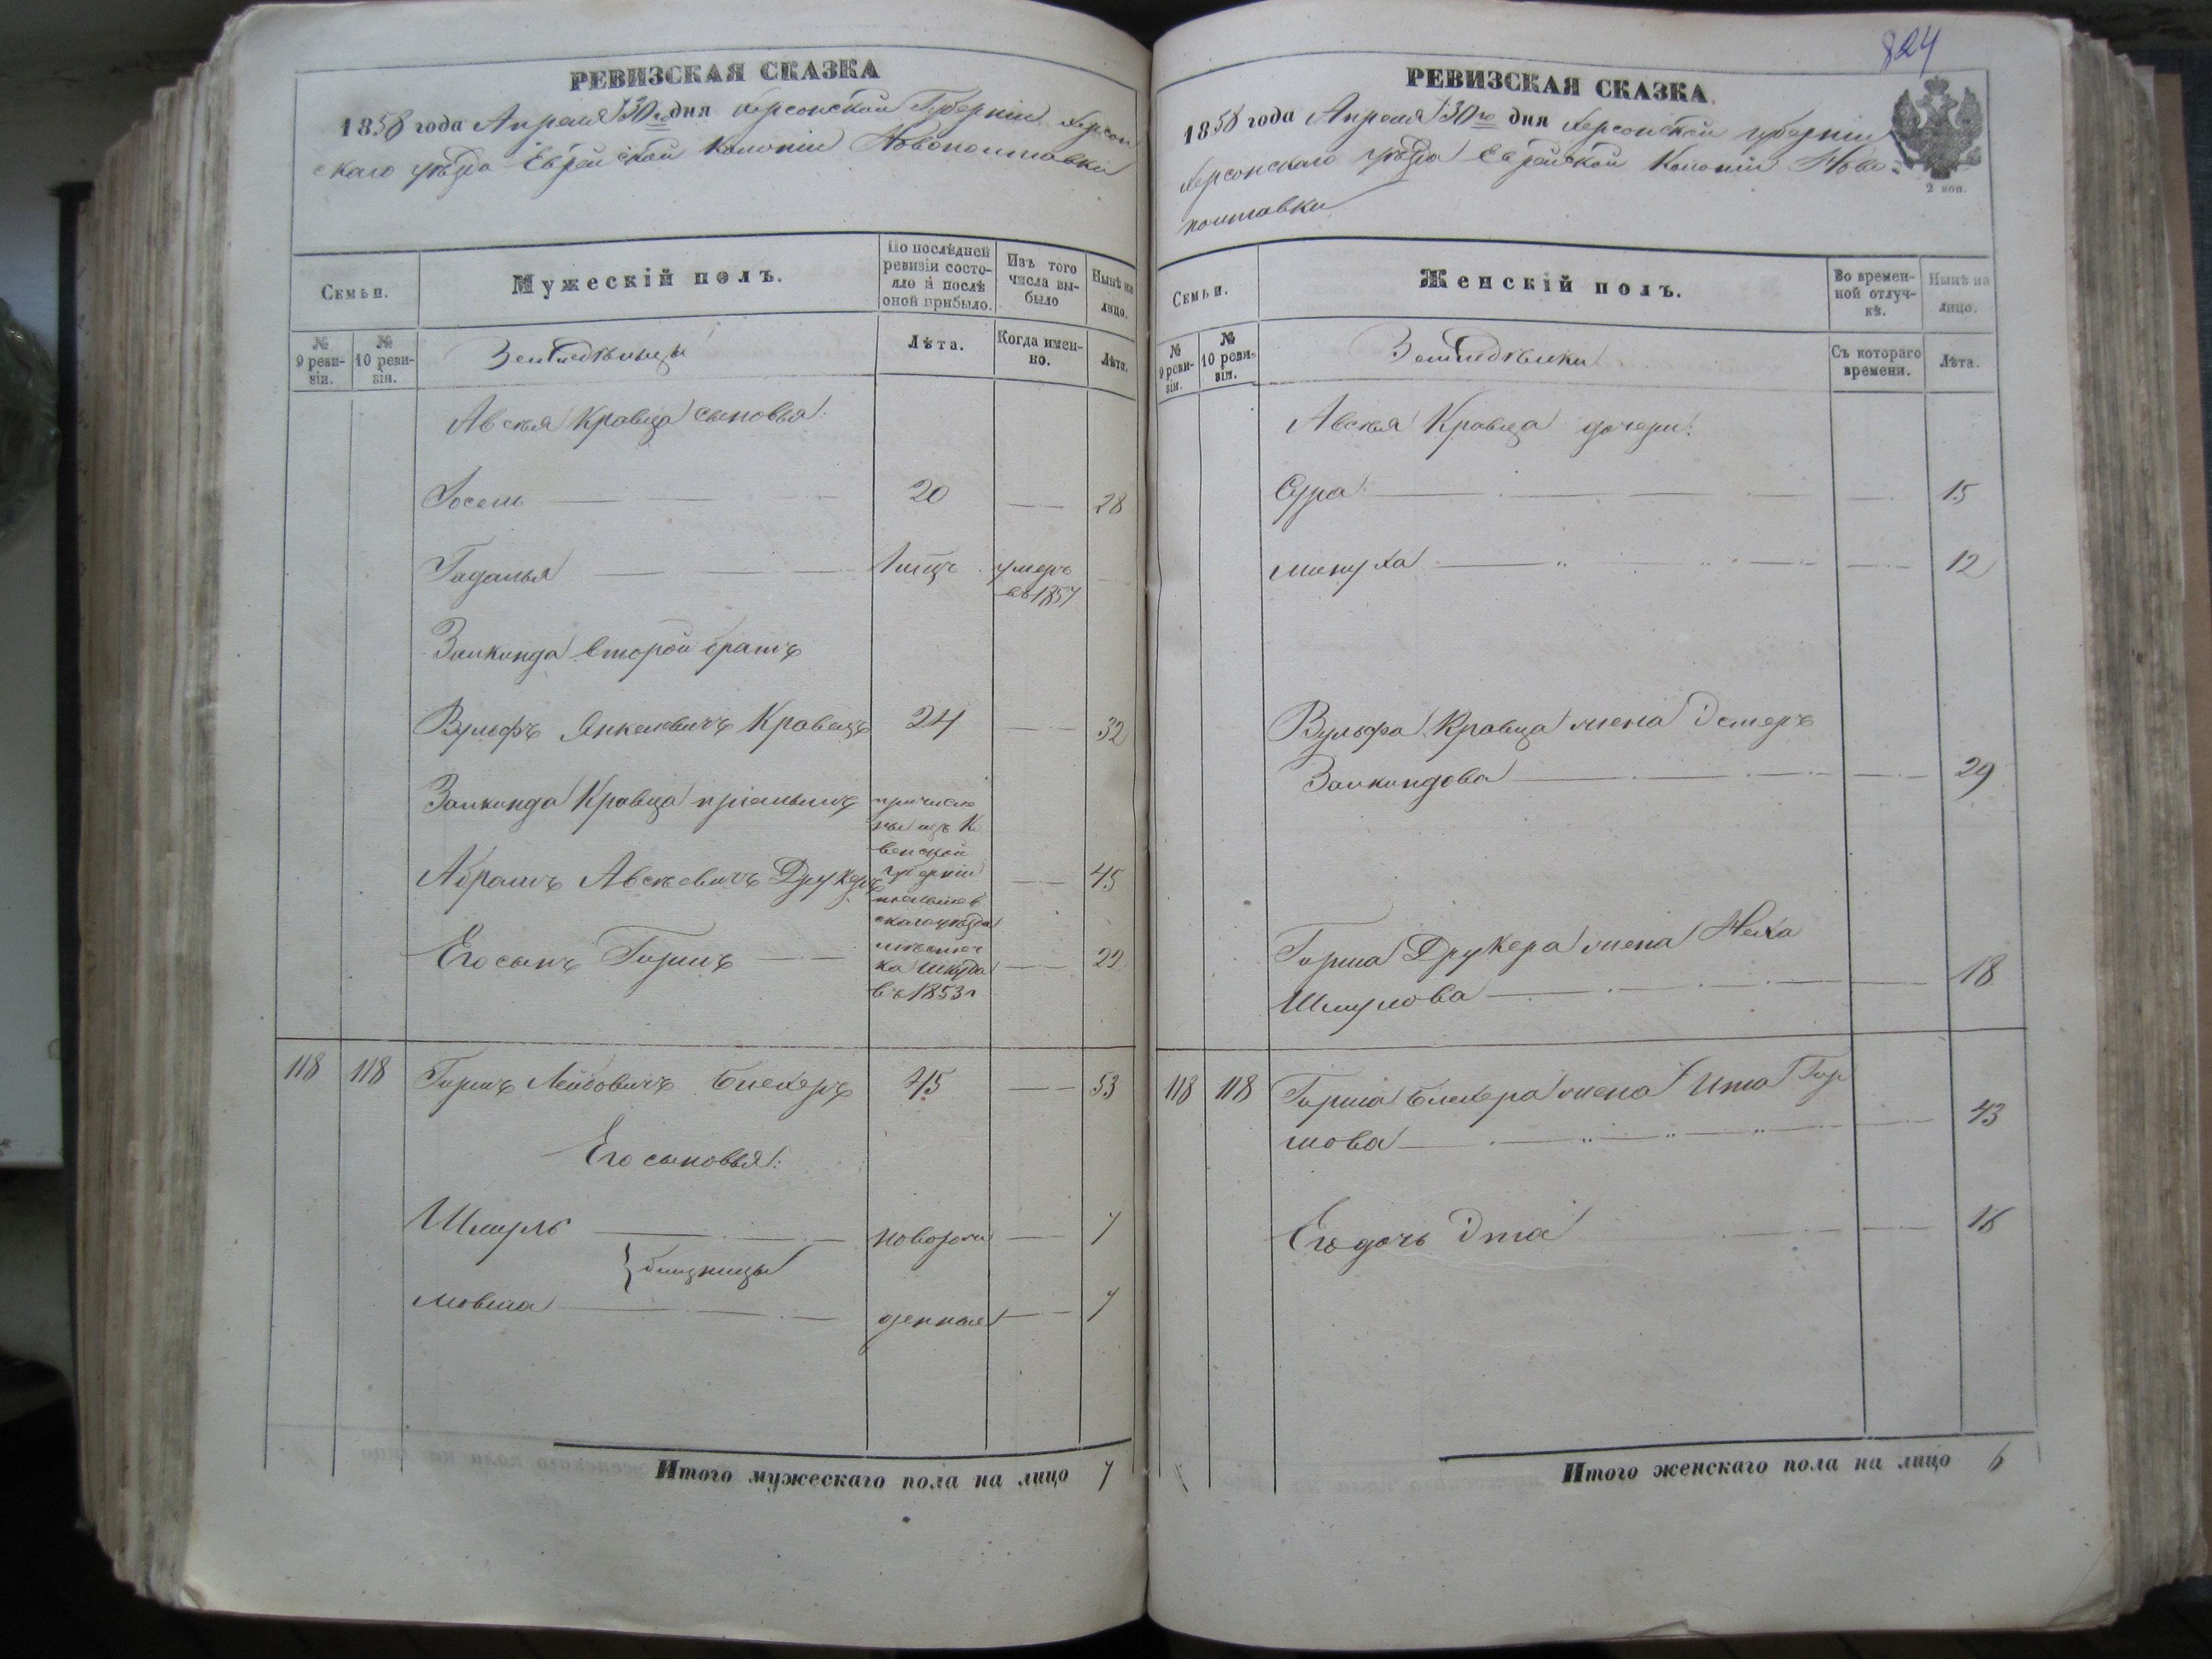 РЕВИЗСКАЯ СКАЗКА
1858 года Апреля 30го дня Херсонской Губернии Херсон
скаго уѣзда Еврейской Колонiи Новополтавки
Семьи.
Мужескiй полъ.
По послѣдней ревизiи состояло и послѣ оной прибыло.
Изъ того числа выбыло
Нынѣ на лицо.
№ 9 ревизiи.
№ 10 ревизiи.
Земледѣльцы
Лѣта.
Когда именно.
Лѣта.
Авсѣя Кравца сыновья:
Іосель 20 28
Гадалья 1 умеръ
въ 1857
Залкинда второй братъ
Вульфъ Янкелевичъ Кравецъ 24 32
Залкинда Кравца прiемышъ
Абрамъ Авсѣевичъ Друкеръ 45
Его сынъ Гиршъ 22
причисле
ны изъ Ко
венской
губернiи
тельшев
скаго уѣзда
мѣстеч
ка Шкуда
въ 1853 г
118 118 Гиршъ Лейбовичъ Блехеръ 45 53
Его сыновья:
Шмуль новорож 7
близницы
Мовша денные 7
Итого мужескаго пола на лицо 7
824
РЕВИЗСКАЯ СКАЗКА.
1858 года Апреля 30го дня Херсонской губернiи
Херсонскаго уѣзда Еврейской Колонiи Ново=
полтавки
2 коп.
Семьи.
Женскiй полъ.
Во временной отлучкѣ.
Нынѣ на лицо.
№ 9 ревизiи.
№ 10 ревизiи.
Земледѣлки
Съ котораго времени.
Лѣта.
Авсѣя Кравца дочери:
Сура 15
Минуха 12
Вульфа Кравца жена Эстеръ
Залкиндова 29
Гирша Друкера жена Неха
Шмулова 18
118 118 Гирша Блехера жена Ита Гир
шова 43
Его дочь Эта 16
Итого женскаго пола на лицо 6